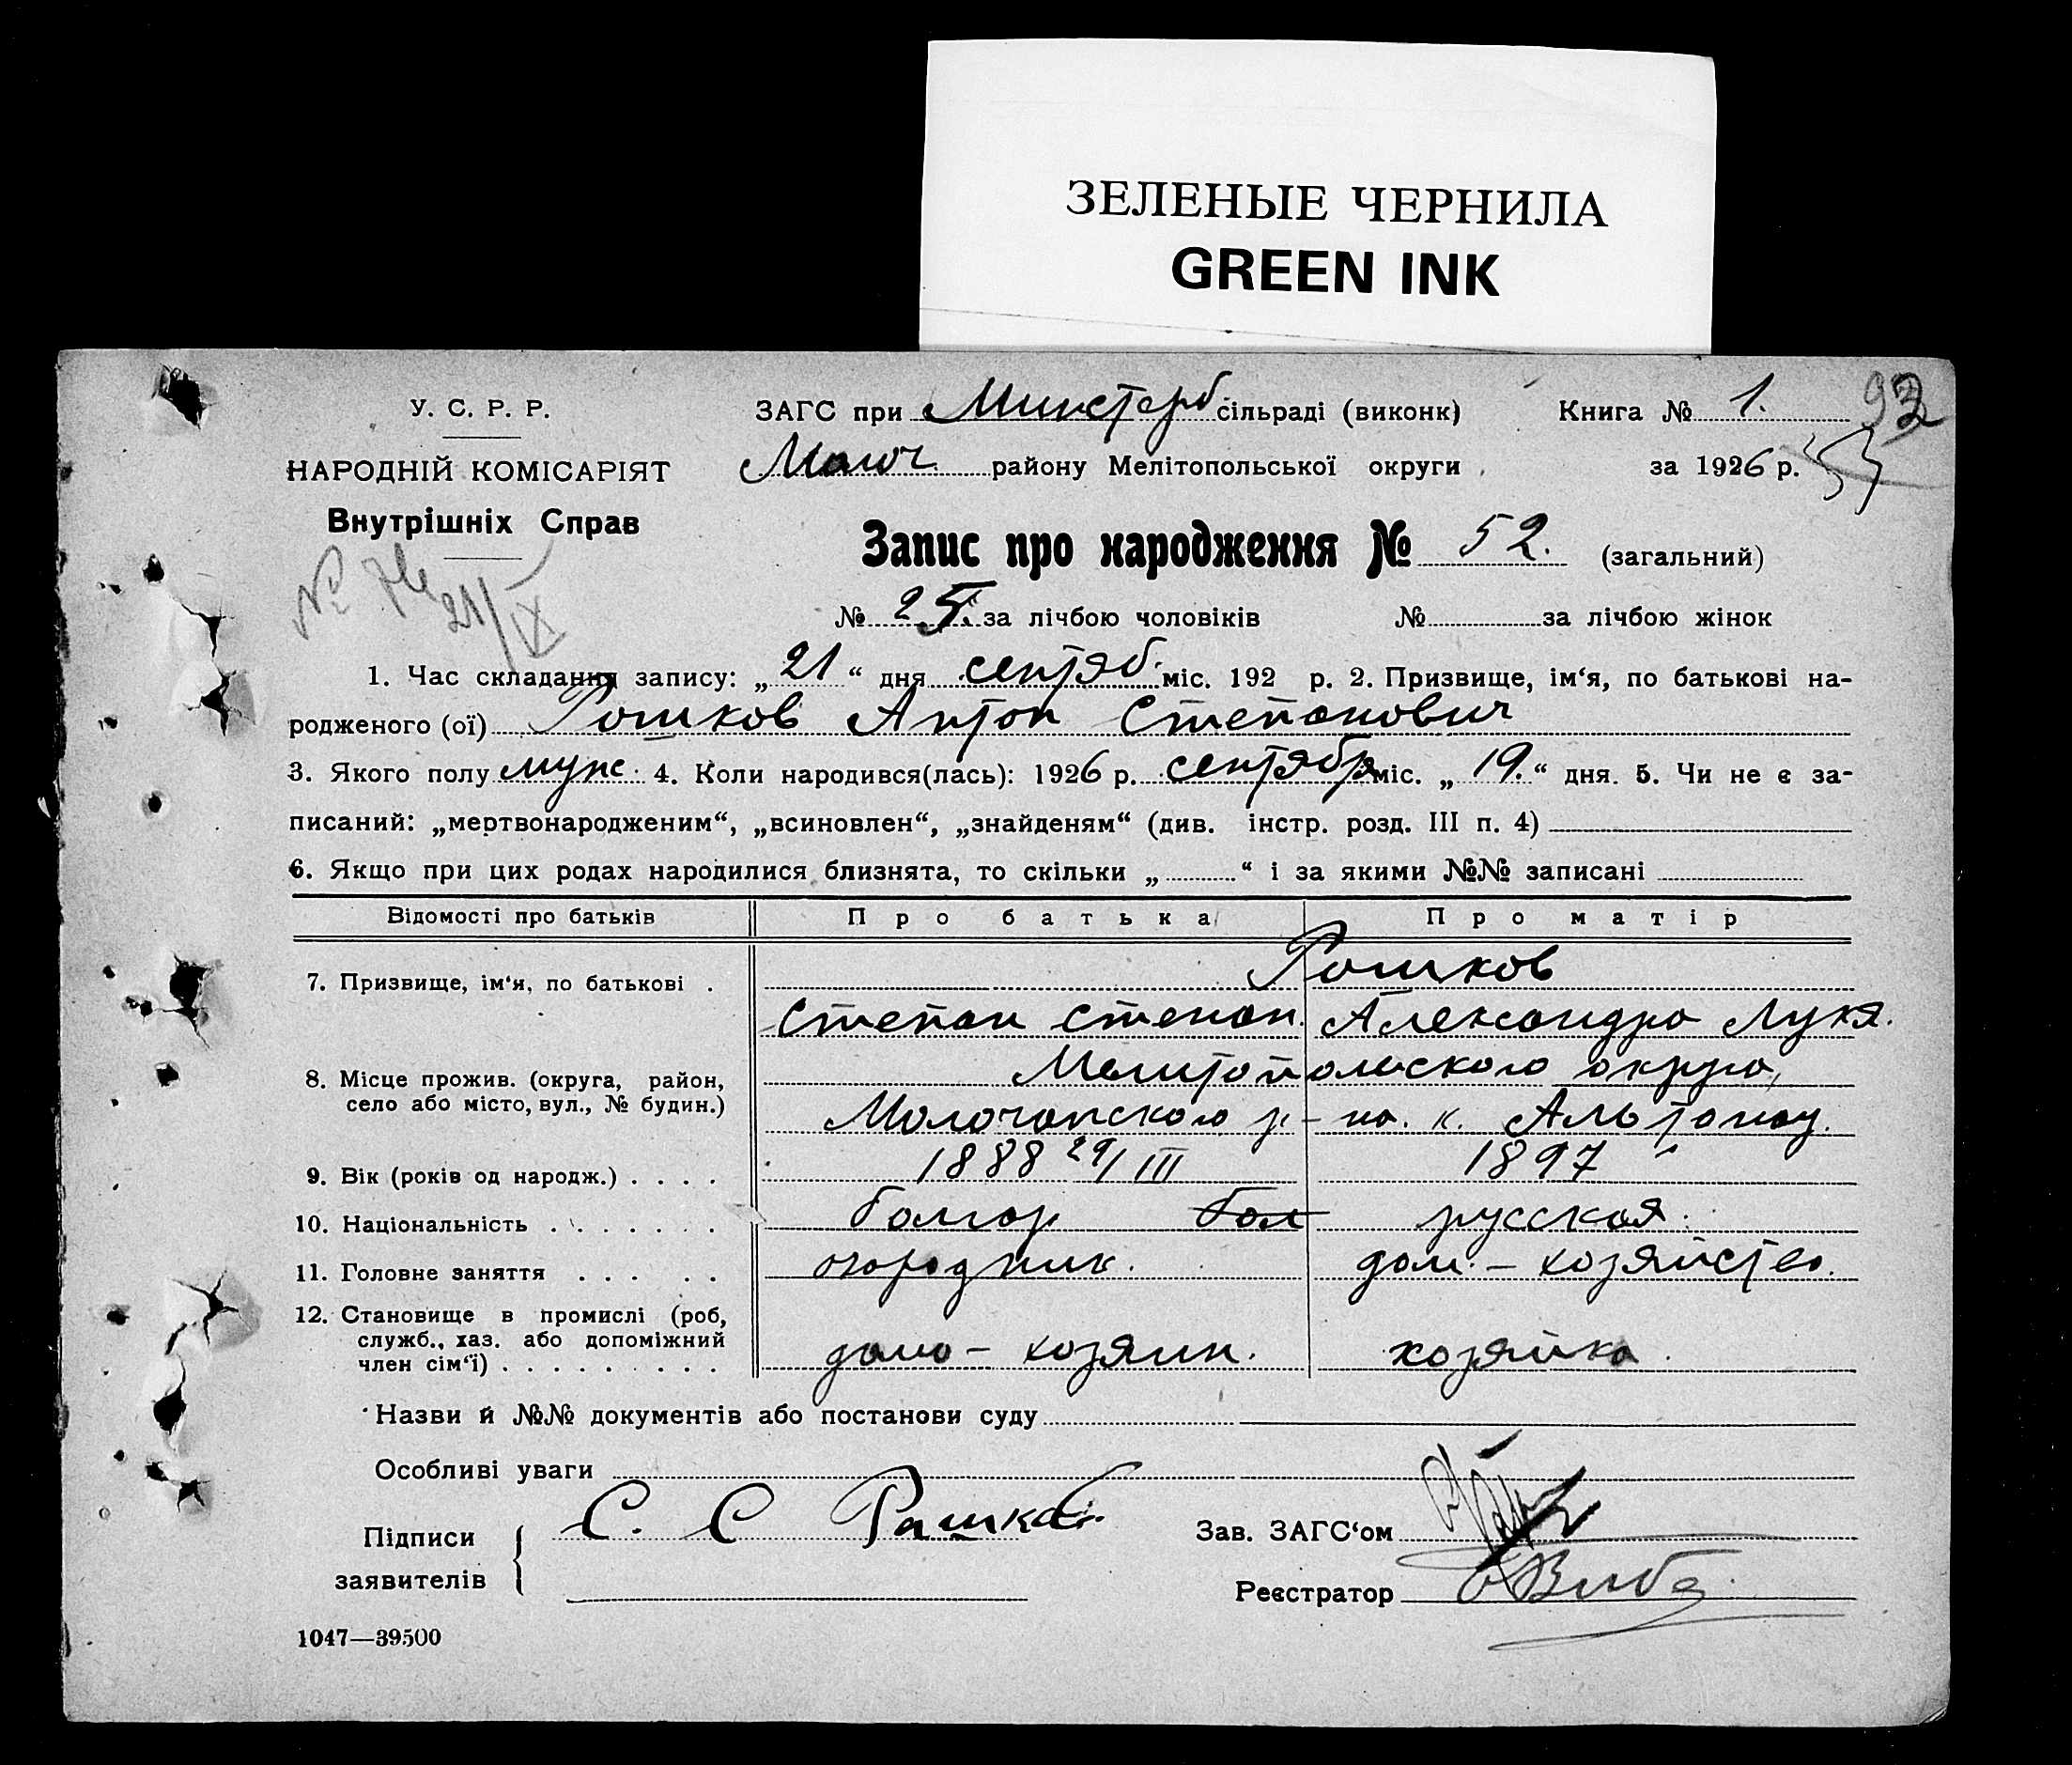 ЗЕЛЕНЫЕ ЧЕРНИЛА
GREEN INK
У. С. Р. Р.
НАРОДНІЙ КОМІСАРІЯТ
Внутрішніх Справ
ЗАГС при Минстерб сільраді (виконк) Книга № 1.
Молоч району Мелітопольської округи за 1926 р.
Запис про народження № 52. (загальний)
№ 25. за лічбою чоловіків № за лічбою жінок
21/IX
1. Час складання запису: „21“ дня сентяб. міс. 192 р. 2. Призвище, ім‘я, по батькові на-
родженого (ої) Рошков Антон Степанович
3. Якого полу муж. 4. Коли народився(лась): 1926 р. сентября міс. „19.“ дня. 5. Чи не є за-
писаний: „мертвонародженим“, „всиновлен“, „знайденям“ (див. інстр. розд. III п. 4)
6. Якщо при цих родах народилися близнята, то скільки „ “ і за якими №№ записані
Відомості про батьків Про батька Про матір
7. Призвище, ім‘я, по батькові . Рошков
Степан Степан. Александра Лукя.
8. Місце прожив. (округа, район, Мелитопольского округа,
село або місто, вул., № будин.) Молочанского р-на. к. Альтонау.
9. Вік (років од народж.) . . . . 1888 29/III 1897
10. Національність . . . . . . . болгар бол русская.
11. Головне заняття . . . . . огородник. дом. – хозяйство.
12. Становище в промислі (роб,
служб., хаз. або допоміжний
член сім‘ї) . . . . . . . . . домо – хозяин. хозяйка.
Назви й №№ документів або постанови суду
Особливі уваги
Підписи С. С Рашков Зав. ЗАГС‘ом
заявителів Реєстратор
1047—39500